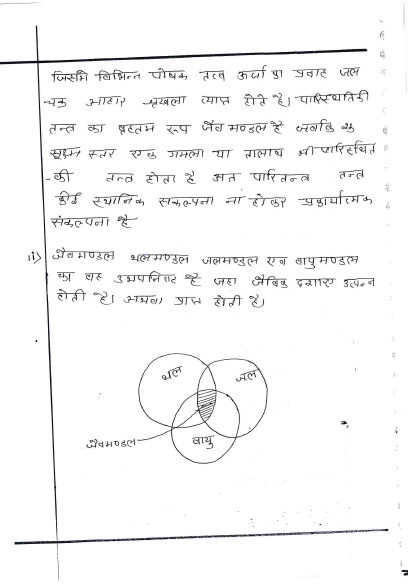 जिसमे विभिन्न पोषक तत्व ऊर्जा का प्रवाह जल
चक्र आहार श्रृंखला व्याप्त होते है। पारिस्थितिकी
तन्त्र का वृहतम रूप जैव मण्डल है जबकि
सूक्ष्म स्तर एक गमला या तालाब भी पारिस्थित
-की तन्त्र होता है अत पारितन्त्र तन्त्र
कोई स्थानिक संकल्पना ना होकर प्रकार्यात्मक
संकल्पना है
ii) जैवमण्डल थलमण्डल जलमण्डल एव वायुमण्डल
का वह उभयनिष्ट है जहा जैविक दशाए उत्पन्न
होती है। अथवा प्राप्त होती है।
थल
जल
जैवमण्डल
वायु